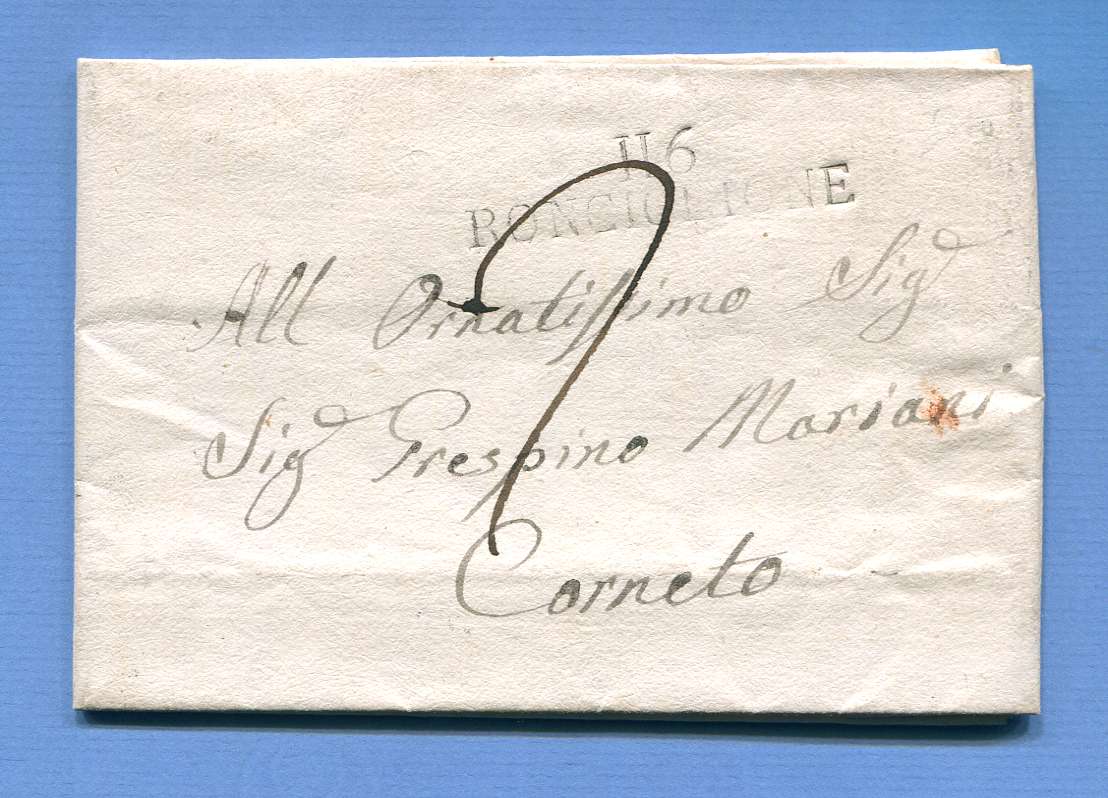 116
RONCIGLIONE
All Ornatissimo Sig.r
Sig.r Crespino Mariani
Corneto